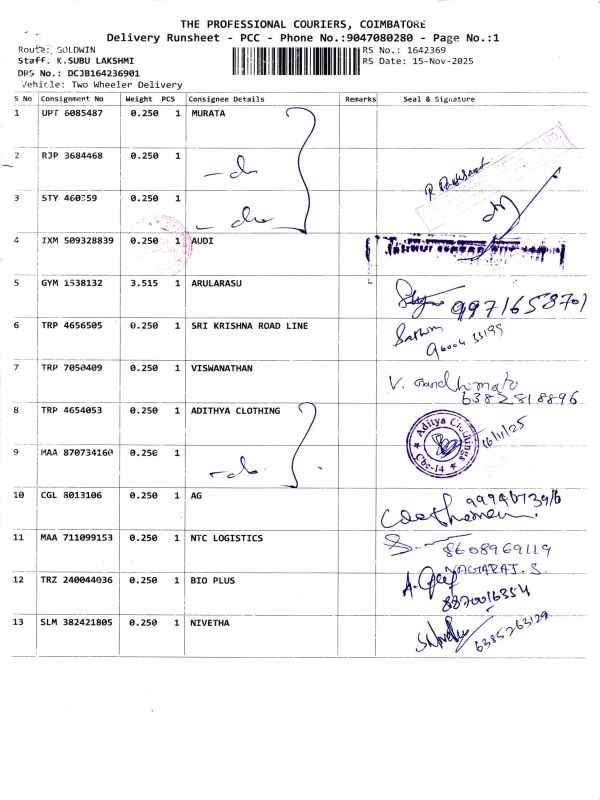 THE PROFESSIONAL COURIERS, COIMBATORE
Delivery Runsheet - PCC - Phone No.:9047080280 - Page No.:1
Route: GOLDWIN RS No.: 1642369
Staff: K.SUBU LAKSHMI RS Date: 15-Nov-2025
DRS No.: DCJB164236901
Vehicle: Two Wheeler Delivery
S No Consignment No Weight PCS Consignee Details Remarks Seal & Signature
1 UPT 6085487 0.250 1 MURATA
2 RJP 3684468 0.250 1 -do
3 STY 460359 0.250 1 -do
4 IXM 509328839 0.250 1 AUDI
5 GYM 1538132 3.515 1 ARULARASU 9971658701
6 TRP 4656505 0.250 1 SRI KRISHNA ROAD LINE
7 TRP 7050409 0.250 1 VISWANATHAN V.
6382818896
8 TRP 4654053 0.250 1 ADITHYA CLOTHING Aditya Clothings Cbe-14 16/11/25
9 MAA 870734160 0.250 1 -do-
10 CGL 8013106 0.250 1 AG
11 MAA 711099153 0.250 1 NTC LOGISTICS 8608969119
NAGARAJ. S.
12 TRZ 240044036 0.250 1 BIO PLUS
8870016354
13 SLM 382421805 0.250 1 NIVETHA 6385263129